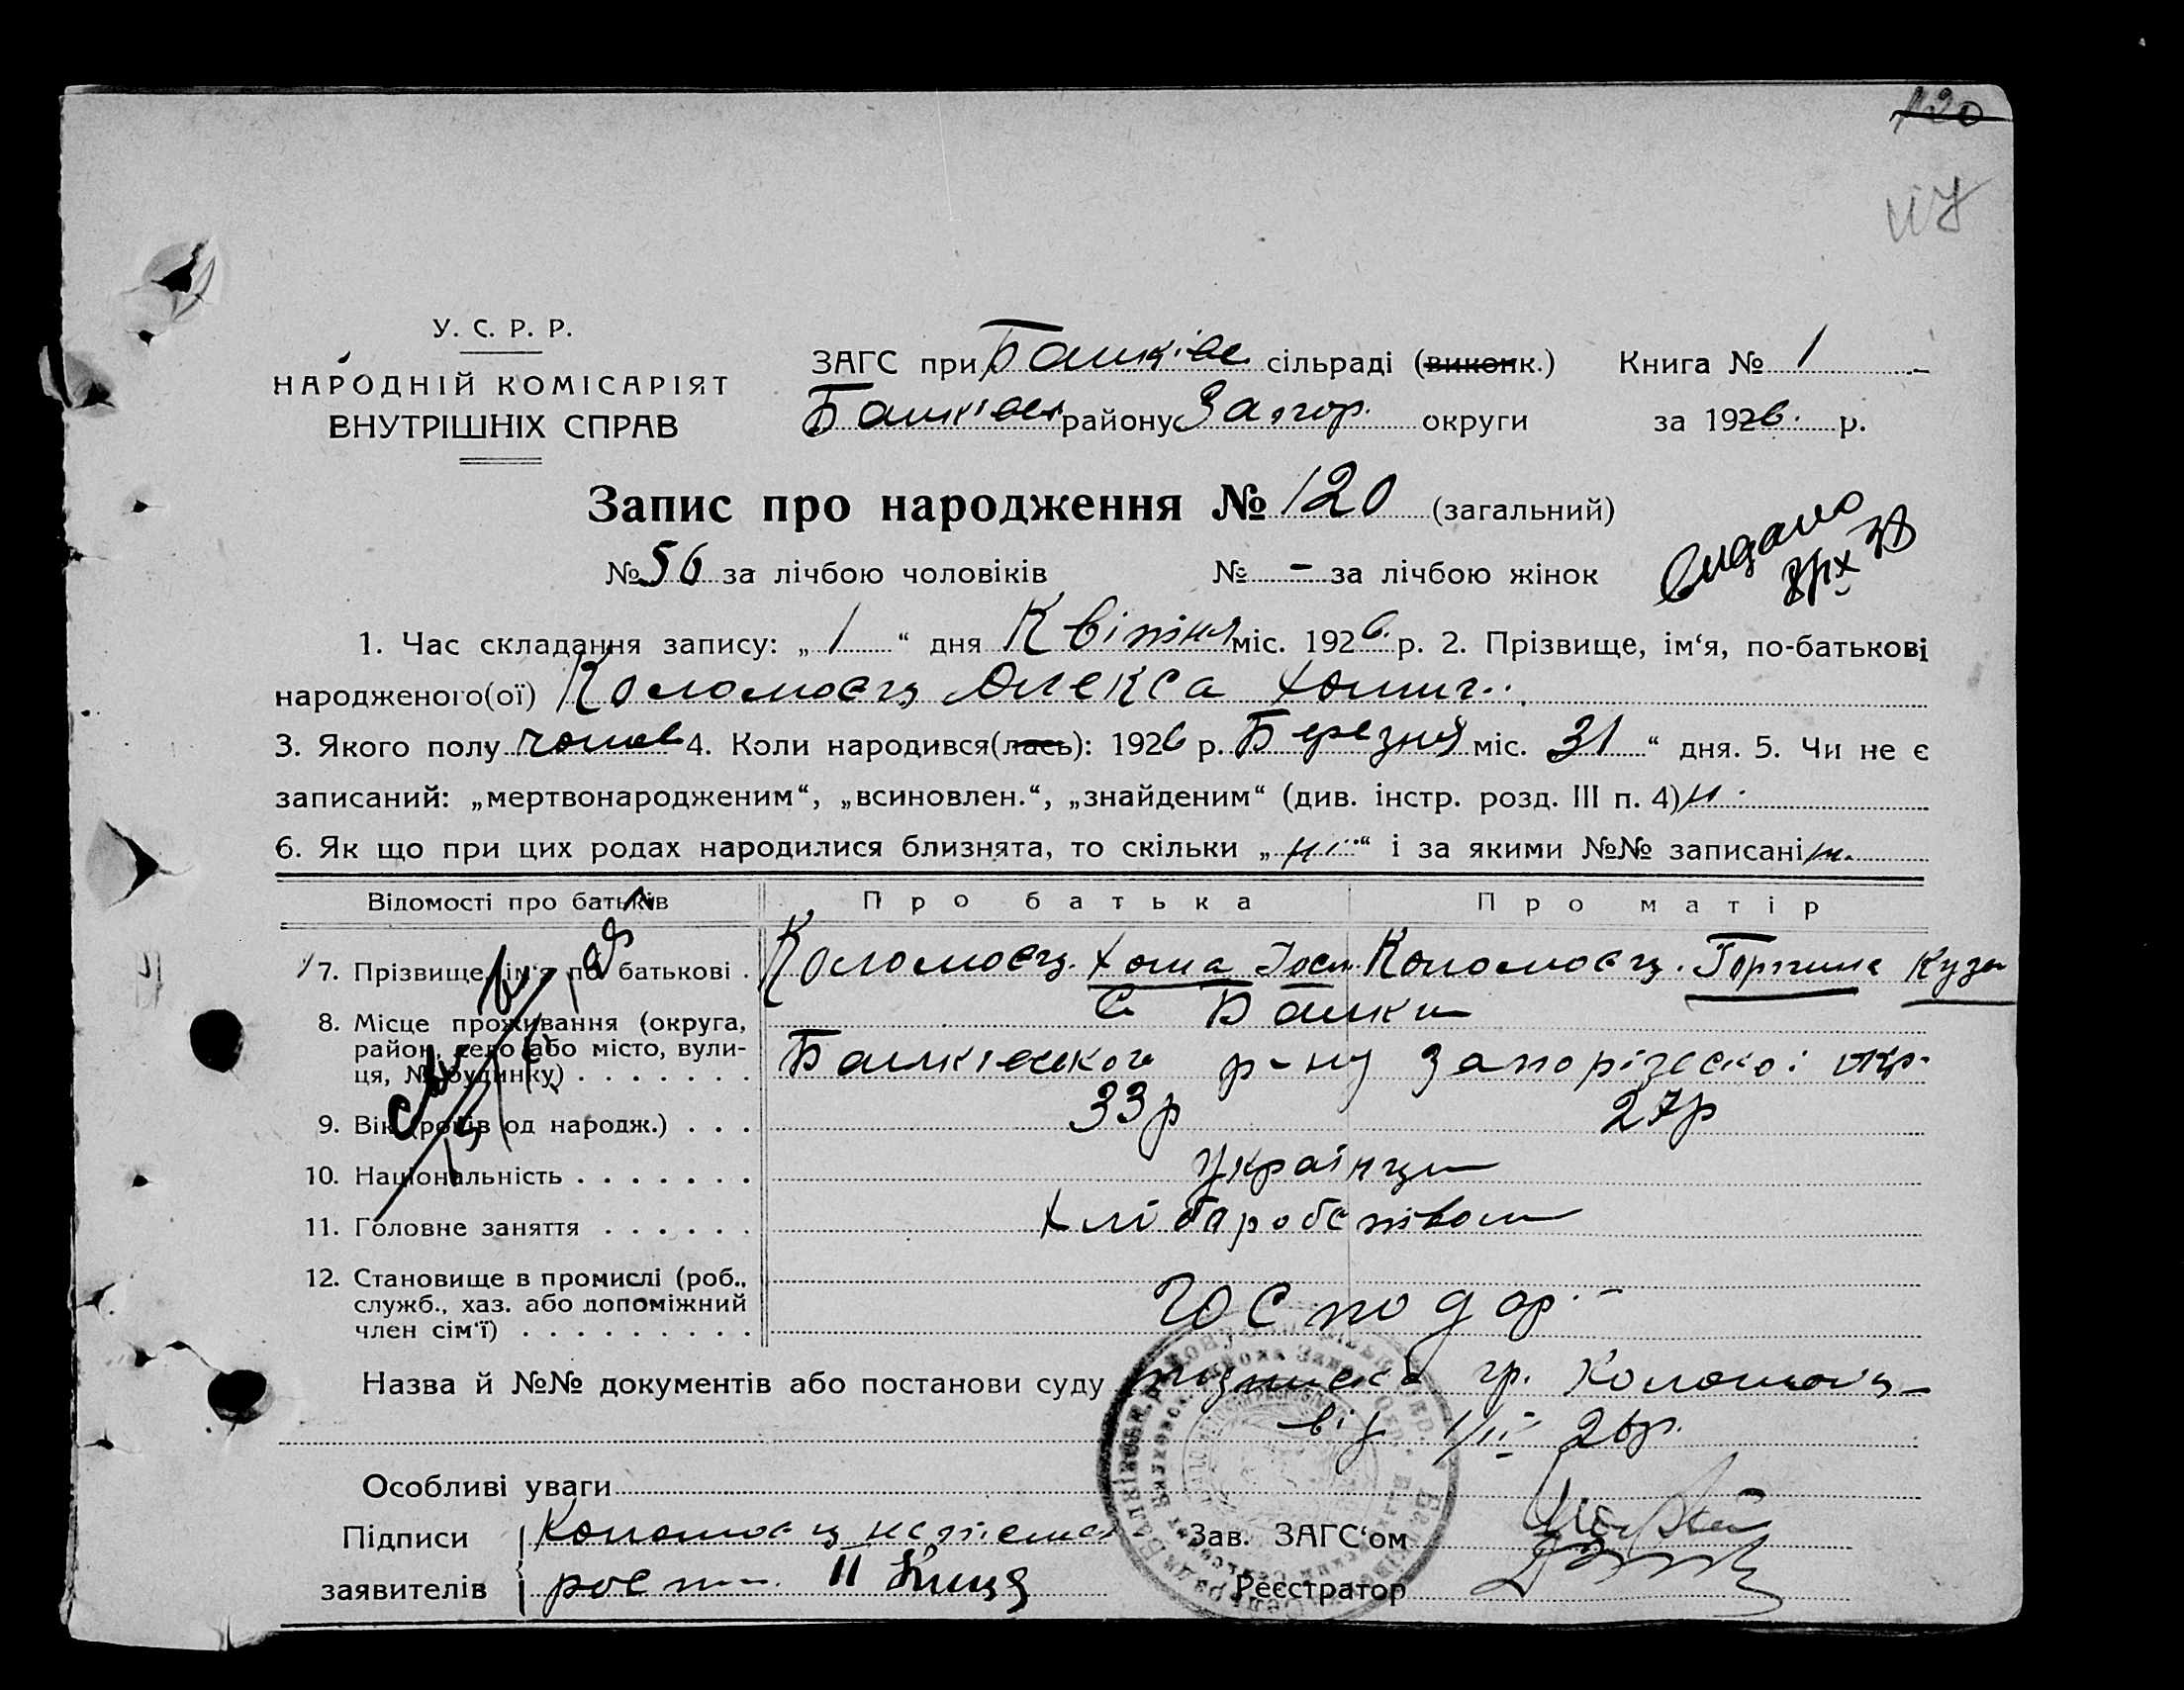 120
117
У. С. Р. Р.
НАРОДНІЙ КОМІСАРІЯТ
ВНУТРІШНІХ СПРАВ
ЗАГС при Балків сільраді (виконк.) Книга № 1
Балківск району Запор. округи за 1926. р.
Запис про народження № 120 (загальний)
№ 56 за лічбою чоловіків № - за лічбою жінок
видано
1. Час складання запису: „ 1 “ дня Квітня міс. 1926 р. 2. Прізвище, ім‘я, по-батькові
народженого(ої) Коломоєць Олекса Хомич
3. Якого полу чолов 4. Коли народився(лась): 1926 р. Березня міс. 31 “ дня. 5. Чи не є
записаний: „мертвонародженим“, „всиновлен.“, „знайденим“ (див. інстр. розд. III п. 4) н.
6. Як що при цих родах народилися близнята, то скільки „ ні “ і за якими №№ записані
Відомості про батьків Про батька Про матір
7. Прізвище, ім‘я по батькові . Коломоєць Хома Йосип Коломоєць Горпина Кузм
8. Місце проживання (округа, район, село або місто, вули- ця, № будинку) . . . . . . . с Балки
Балківського р-ну Запорізської окр.
9. Вік (років од народж.) . . . 33р 27р
10. Національність . . . . . . . українци
11. Головне заняття . . . . . . хліборобством
12. Становище в промислі (роб., служб., хаз. або допоміжний член сім‘ї) . . . . . . . . . господар
Назва й №№ документів або постанови суду гр. Коломоєць
від 26р.
Особливі уваги
Підписи Коломоєць Зав. ЗАГС‘ом
заявителів Реєстратор